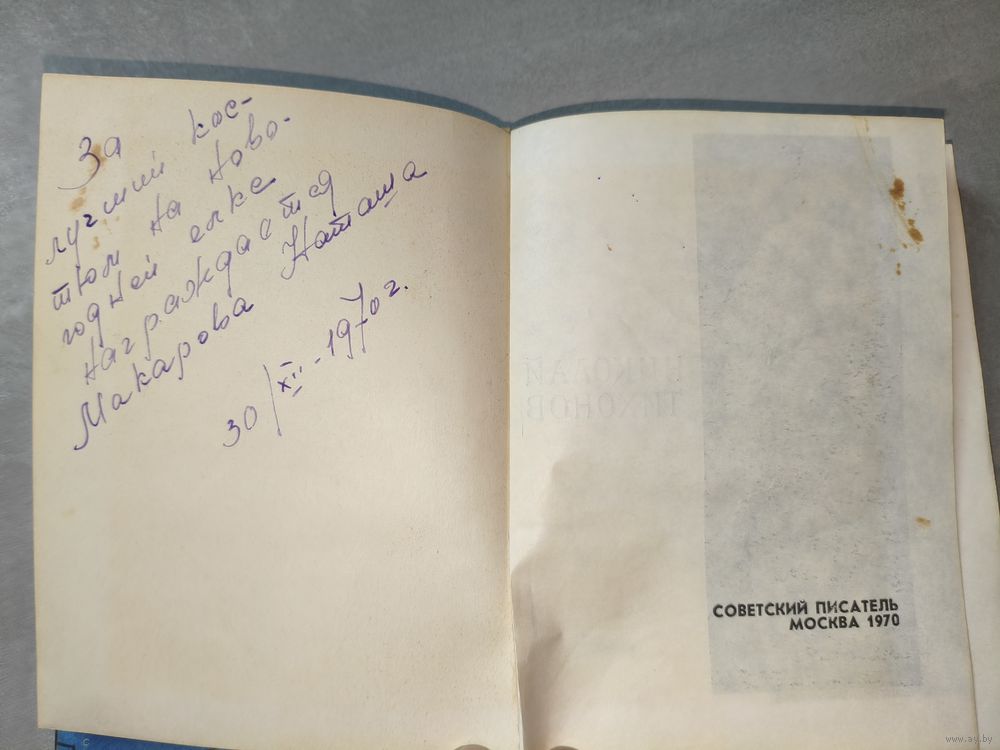 За
лучший кос-
тюм на ново-
годней елке
награждается
Макарова Наташа
30/XII-1970г.
НИКОЛАЙ
ТИХОНОВ
СОВЕТСКИЙ ПИСАТЕЛЬ
МОСКВА 1970
www.ay.by